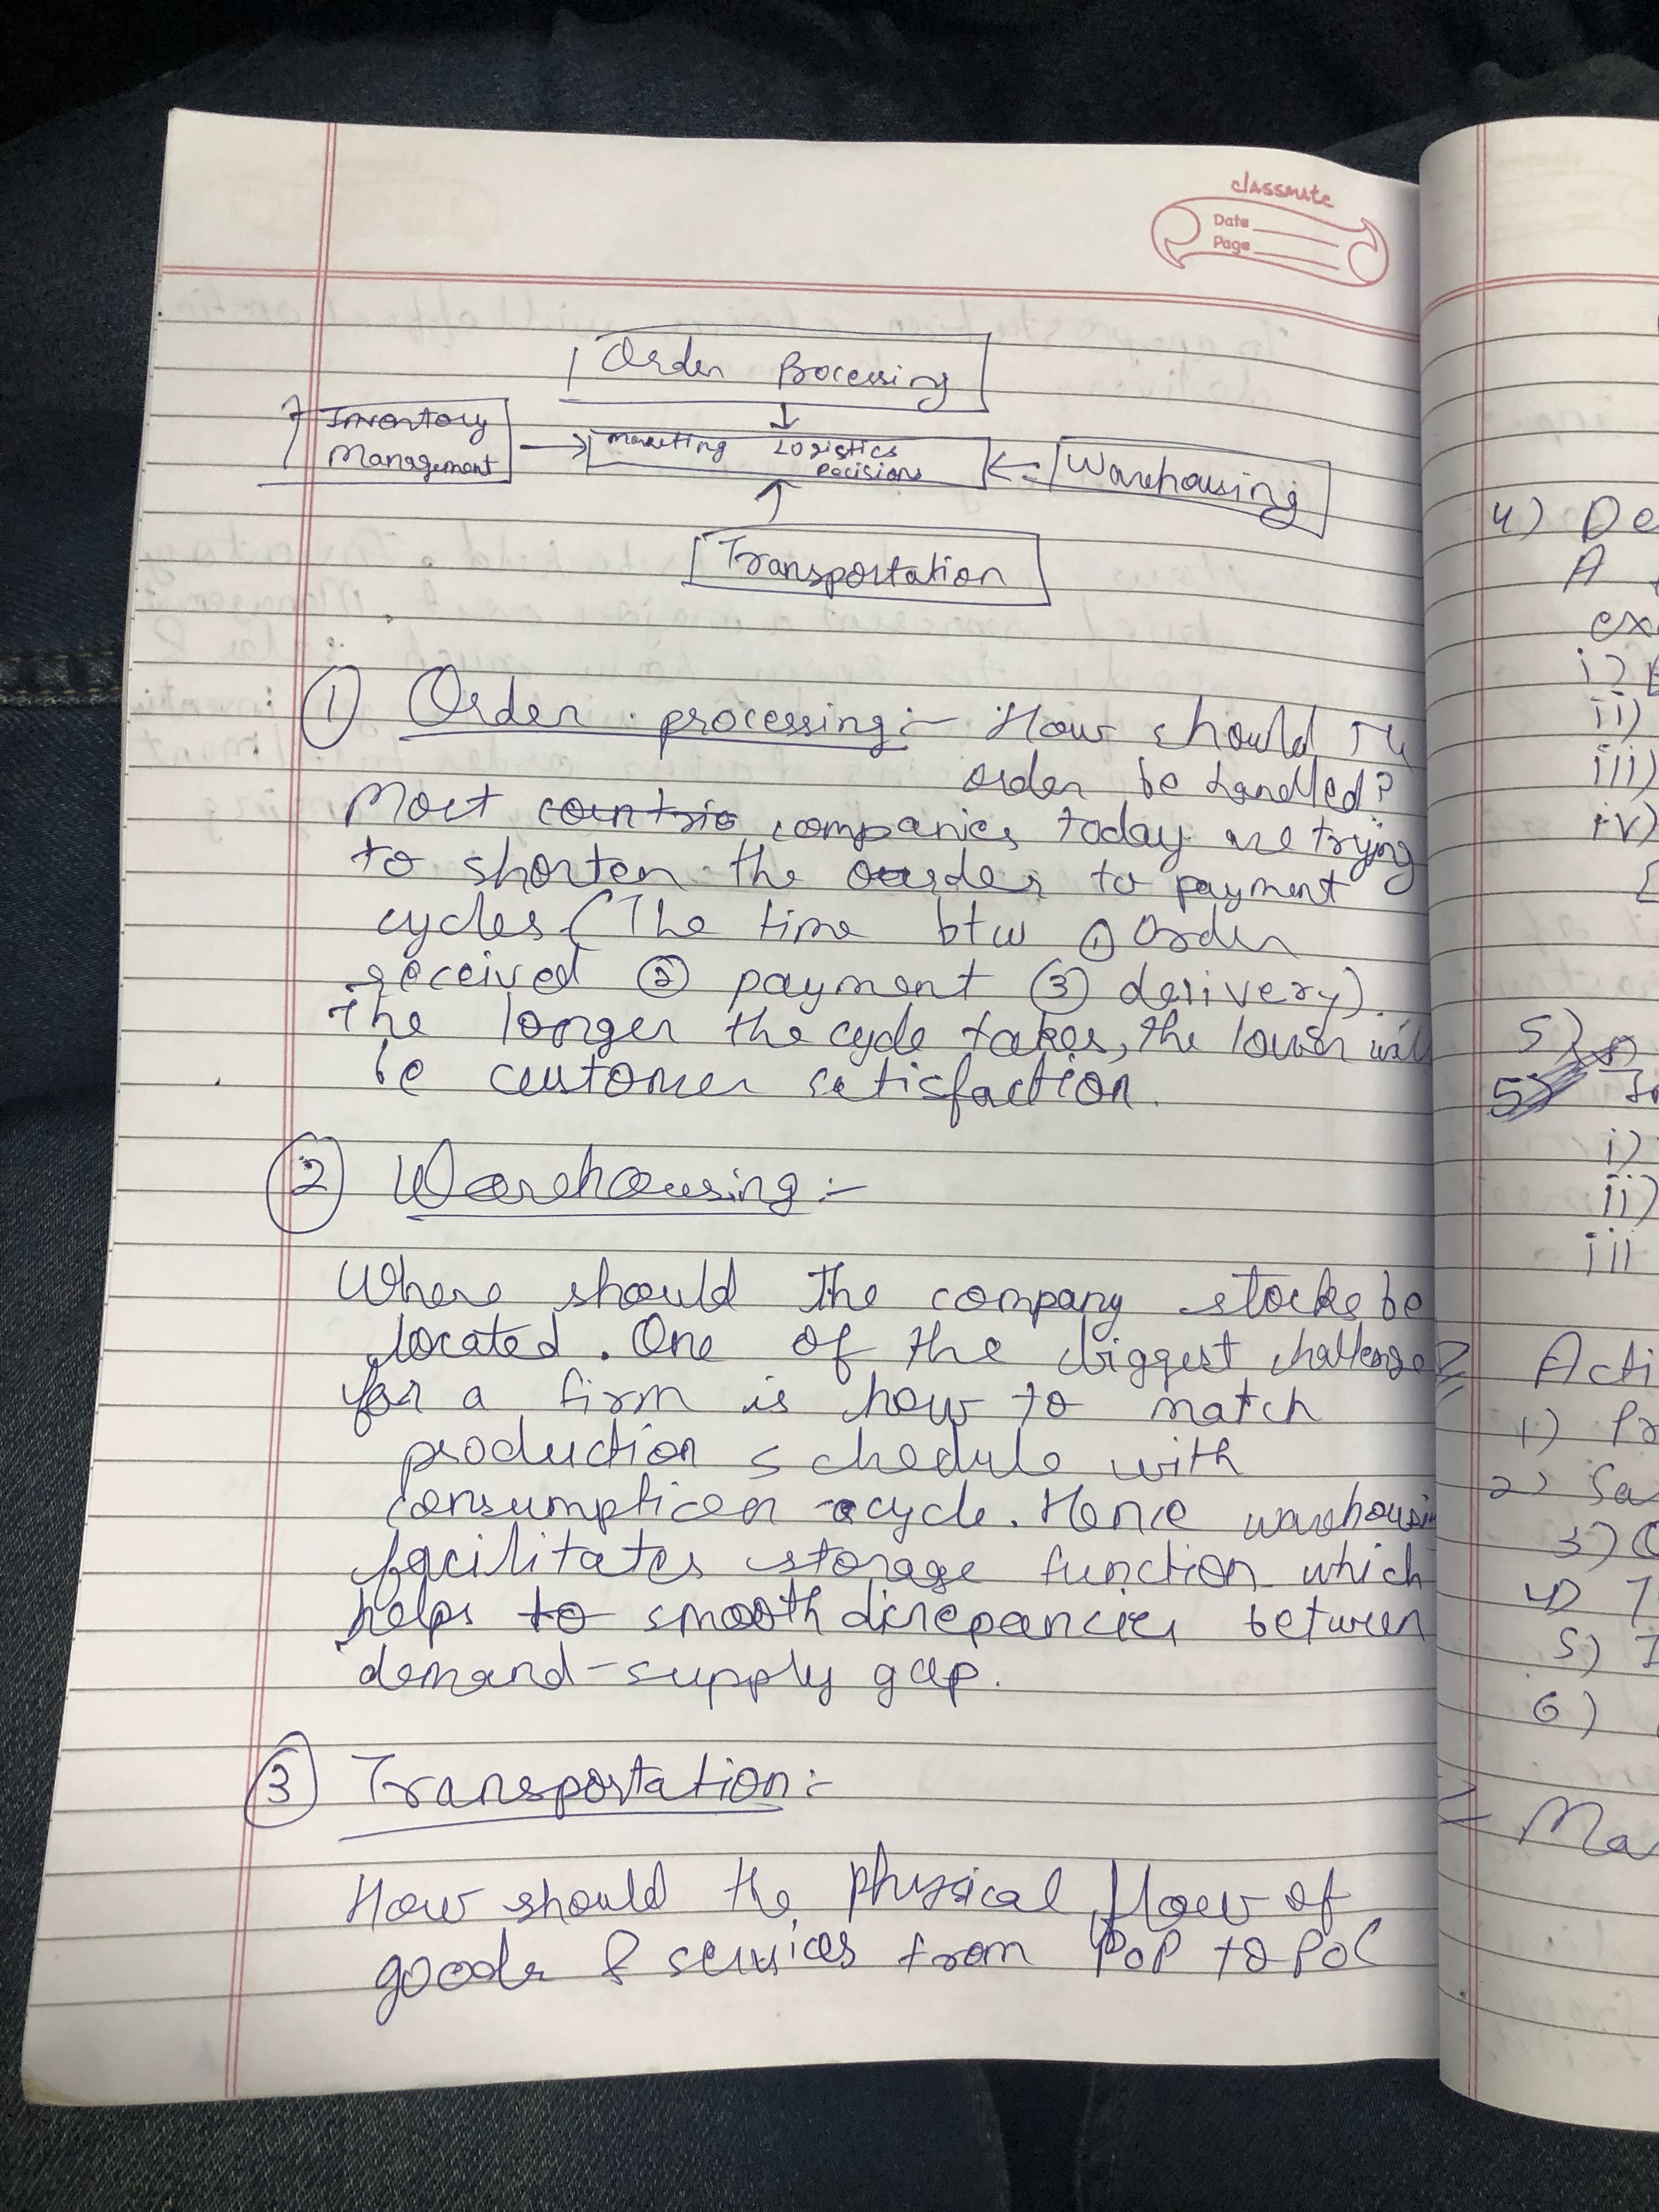 classmate
Date
Page
Order Processing
Inventory
Management
Marketing Logistics
Decisions
Warehousing
Transportation
① Order processing:- How should the
order be handled?
Most countrie companies today are trying
to shorten the order to payment
cycles (The time btw ① Order
received ② payment ③ delivery).
The longer the cycle takes, the lower will
be customer satisfaction.
② Warehousing:-
Where should the company stocks be
located. One of the biggest challenge
for a firm is how to match
production schedule with
consumption cycle. Hence warehousin
facilitates storage function which
helps to smooth discrepancies between
demand-supply gap.
③ Transportation:-
How should the physical flow of
goods & services from PoP to PoC
4) De
A
ex
i)
ii)
iii)
iv)
5)
5)
i)
ii)
iii
Acti
1) Pr
2) Sa
3)
4)
5)
6)
Ma